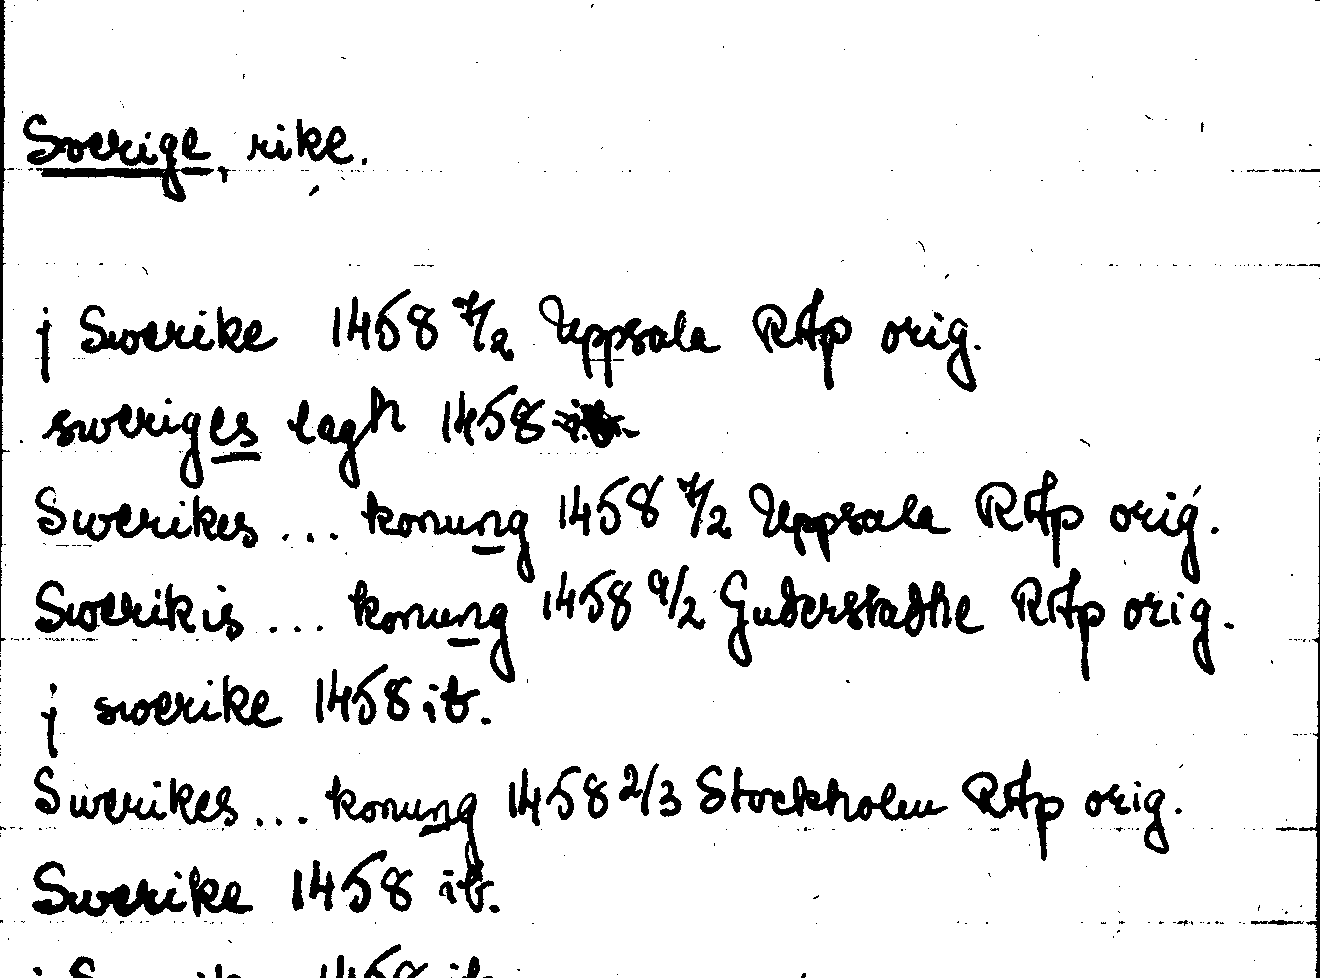 Sverige, rike.
j Swerike 1458 7/2 Uppsala RAp orig.
sweriges lagh 1458
Swerikes ... konung 1458 7/2 Uppsala RAp orig.
Swerikis ... konung 1458 9/2 Guderstadhe RAp orig.
j swerike 1458 ib.
Swerikes ... konung 1458 2/3 Stockholm RAp orig.
Swerike 1458 ib.